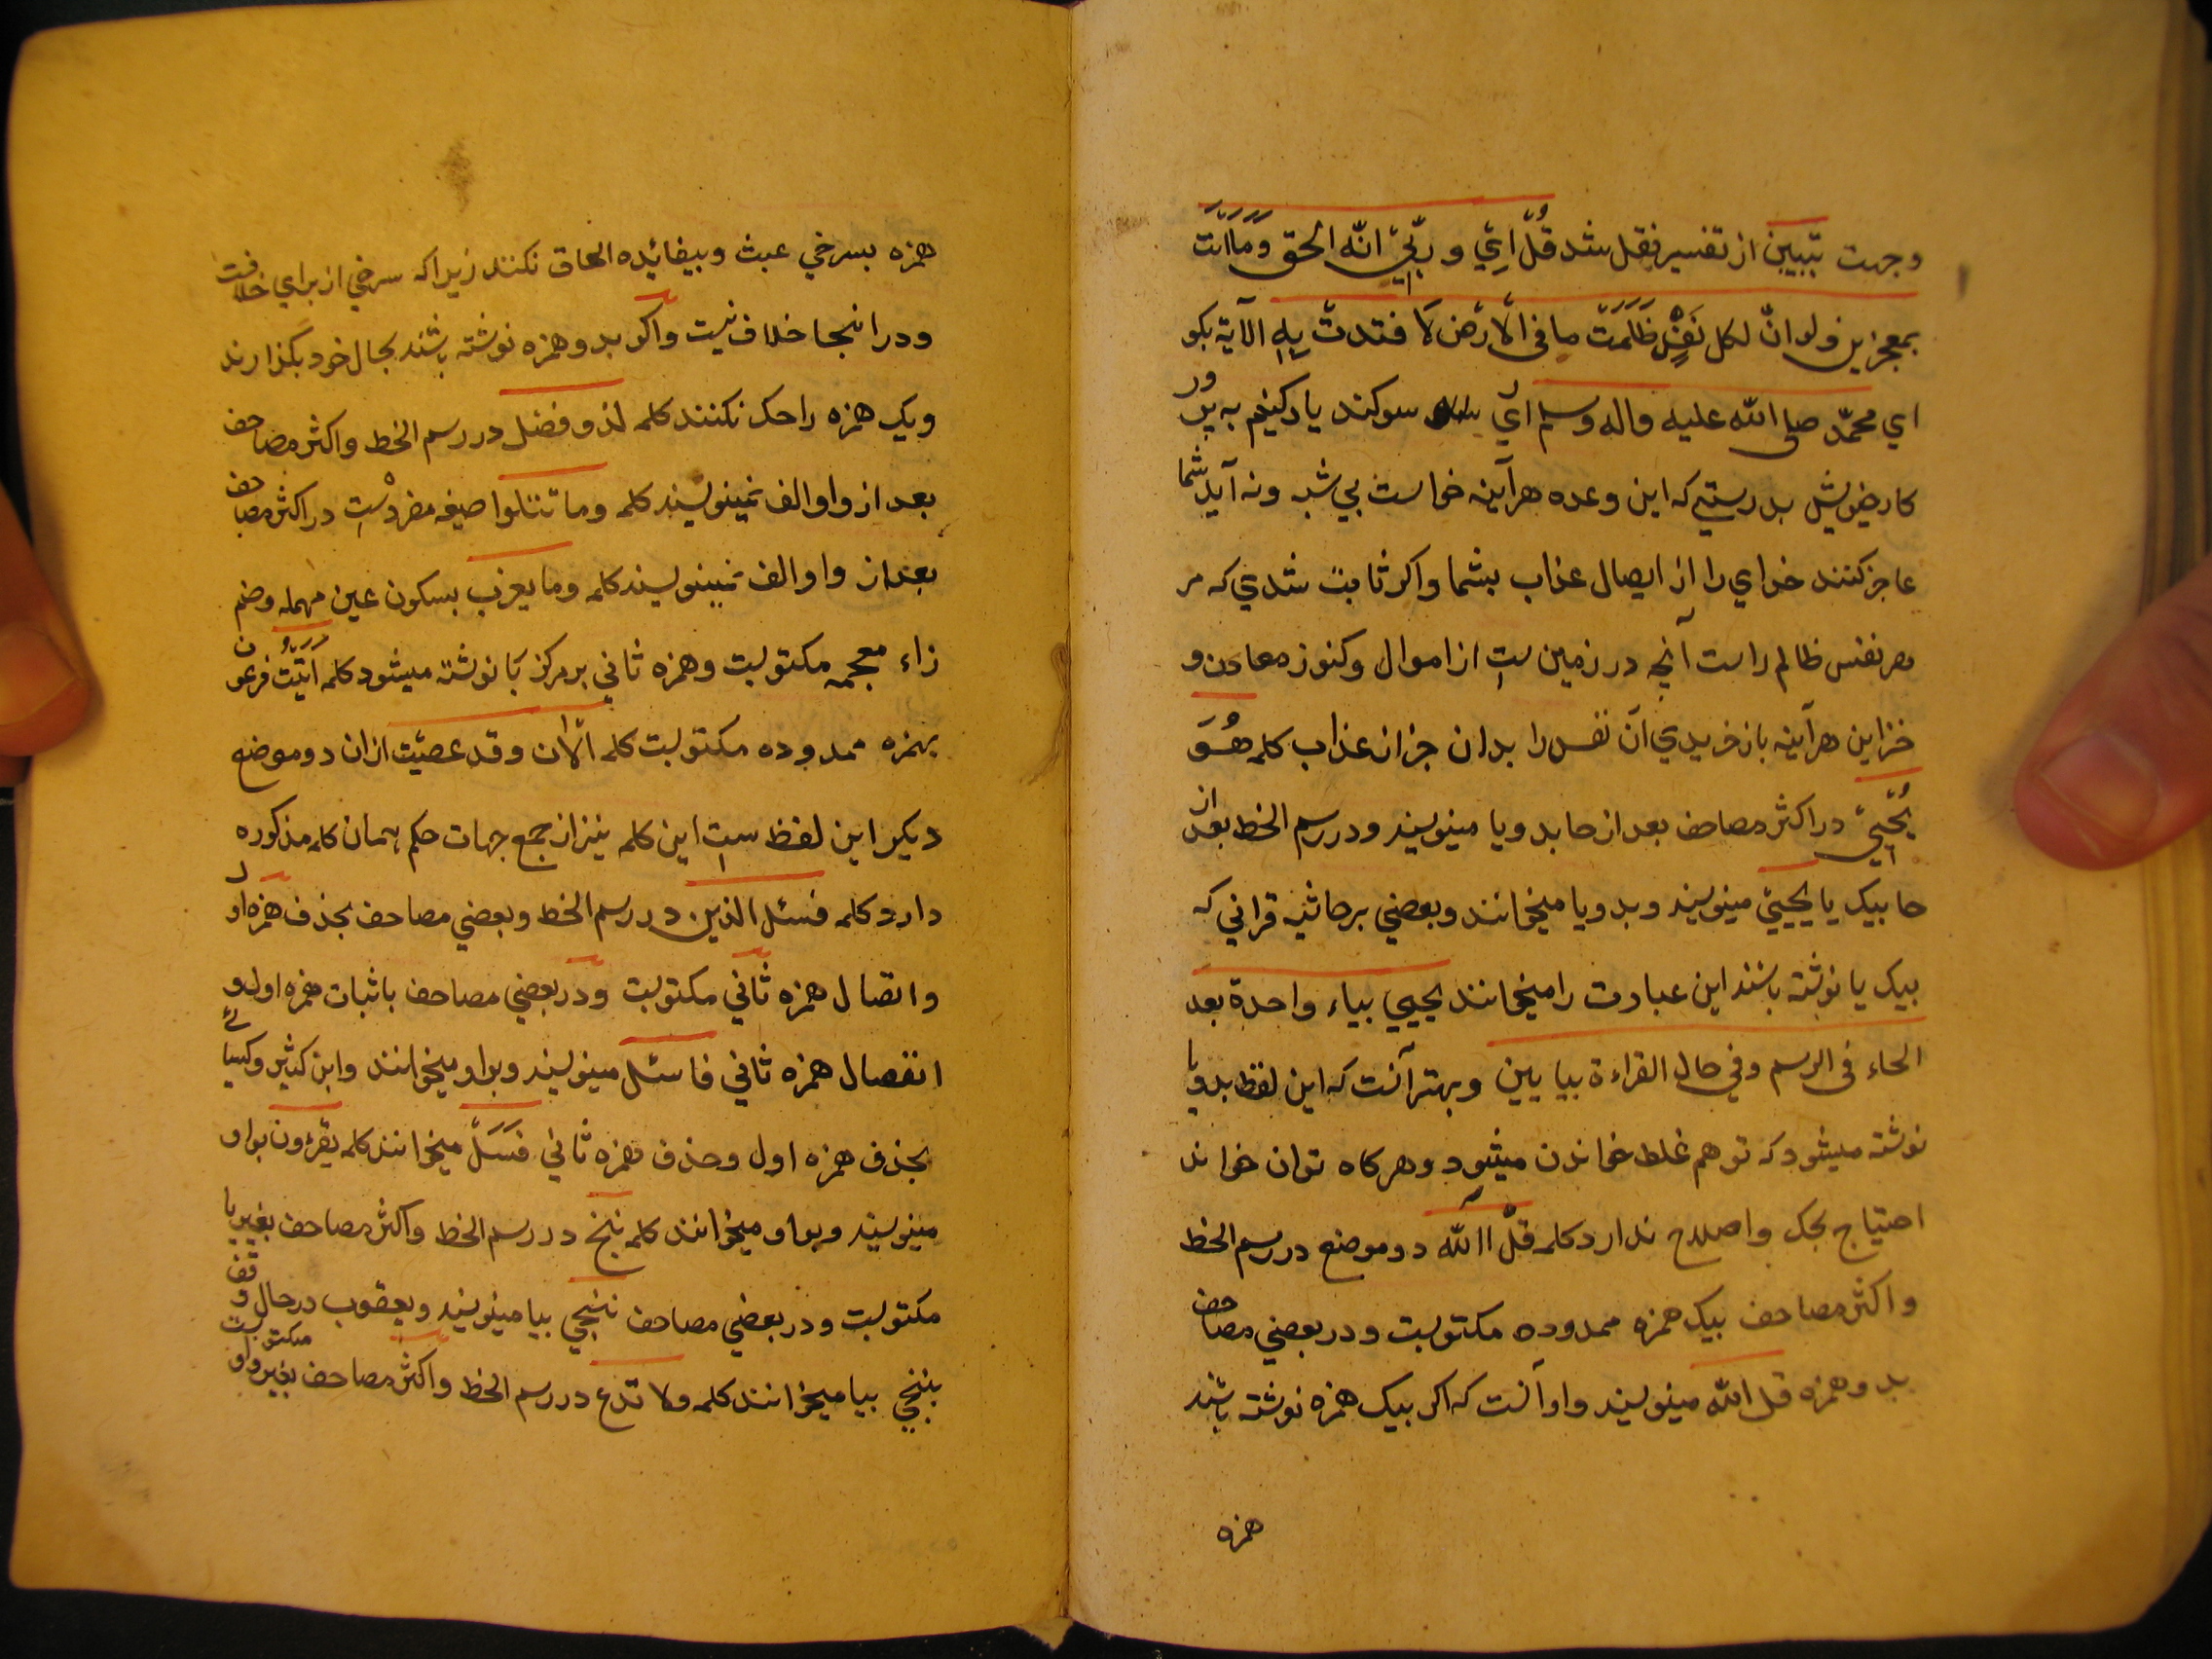 وجهت تبیین از تفسیر نقل شد قُلْ اِيْ و ربّيْ انّه الحق وَمَا اَنتَ
بمعجزین ولو انّ لکل نَفسٍ ظَلَمَتْ ما فی الأرْضِ لَا فتدتْ بِهِ الآیة بکو
اي محمّد صلی اللّه علیه واله وسلم اي سوکند یاد کنیم به پرور
کار خویش بدرستي که این وعده هرآینه خواست بي شبه ونه آید شما
عاجز کنند خداي را از ایصال عذاب بشما واکر ثابت شدي که مر
هر نفس ظالم راست آنچه در زمین ست از اموال وکنوز معادن و
خزاین هرآینه باز خریدي آن نفس را بدان جز از عذاب کلمه هُوَ
يُحْيِيْ در اکثر مصاحف بعد از حا بدو یا مینویسند ودر رسم الخط بعد از
حا بیک یا یحیيْ مینویسند وبدو یا میخوانند وبعضي بر حاشیه قراني که
بیک یا نوشته باشند این عبارت را میخوانند یحیي بیاء واحدة بعد
الحاء فی الرسم وفي حال القراءة بیا یین وبهتر آنست که این لفظ بدو یا
نوشته میشود که توهم غلط خواندن میشود وهرکاه توان خواند
احتیاج بحک واصلاح ندارد کلمه قُلْ االلّه دو موضع در رسم الخط
واکثر مصاحف بیک همزه ممدوده مکتوبست ودر بعضي مصاحف
بدو همزه قل االلّه مینویسند واو آنست که اکر بیک همزه نوشته باشند
همزه
همزه بسرخي عبث وبیفائده الحاق نکنند زیرا که سرخي از براي خلافست
ودر اینجا خلاف نیست واکر بدو همزه نوشته باشند بحال خود بگذارند
ویک همزه را حک نکنند کلمه لذو فضل در رسم الخط واکثر مصاحف
بعد از واو الف نمینویسند کلمه وما تتلوا صیغه مفردست در اکثر مصاحف
بعد از واو الف نمینویسند کلمه وما یعزب بسکون عین مهمله وضم
زاء معجمه مکتوبست وهمزه ثاني بر مرکز یا نوشته میشود کلمه اَتَیْتَ فرعون
بهمزه ممدوده مکتوبست کلمه الآن وقد عصیْت از ان دو موضع
دیکر این لفظ ست این کلمه نیز از جمع جهات حکم همان کلمه مذکوره
دارد کلمه فسئل الذین در رسم الخط وبعضي مصاحف بحذف همزه اول
واتصال همزه ثاني مکتوبست ودر بعضي مصاحف باثبات همزه اول و
انفصال همزه ثاني فاسئل مینویسند وبواو میخوانند وابن کثیر وکسائي
بحذف همزه اول وحذف همزه ثاني فَسَلْ میخوانند کلمه یقرؤن بواو
مینویسند وبواو میخوانند کلمه ننج در رسم الخط واکثر مصاحف بغیر یا
مکتوبست ودر بعضي مصاحف ننجي بیا مینویسند ویعقوب در حال وقف
ننجي بیا میخوانند کلمه ولا تدع در رسم الخط واکثر مصاحف بغیر واو مکتوبست